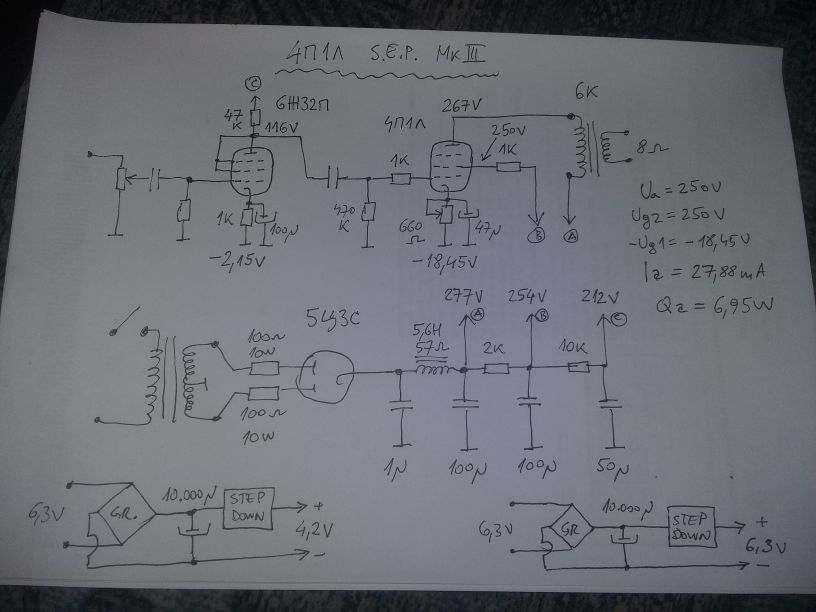 4П1Л S.E.P. MK III
C
6Ж32П
47
K
116V
1K
100µ
-2,15V
470
K
1K
4П1Л
267V
250V
1K
660
Ω
47µ
-18,45V
B
A
6K
8Ω
Ua = 250V
Ug2 = 250V
-Ug1 = -18,45V
Ia = 27,88mA
Qa = 6,95W
5Ц3С
100Ω
10W
100Ω
10W
5,6H
57Ω
277V
A
2K
254V
B
10K
212V
C
1µ
100µ
100µ
50µ
6,3V
GR.
10.000µ
STEP
DOWN
+
4,2V
-
6,3V
GR
10.000µ
STEP
DOWN
+
6,3V
-